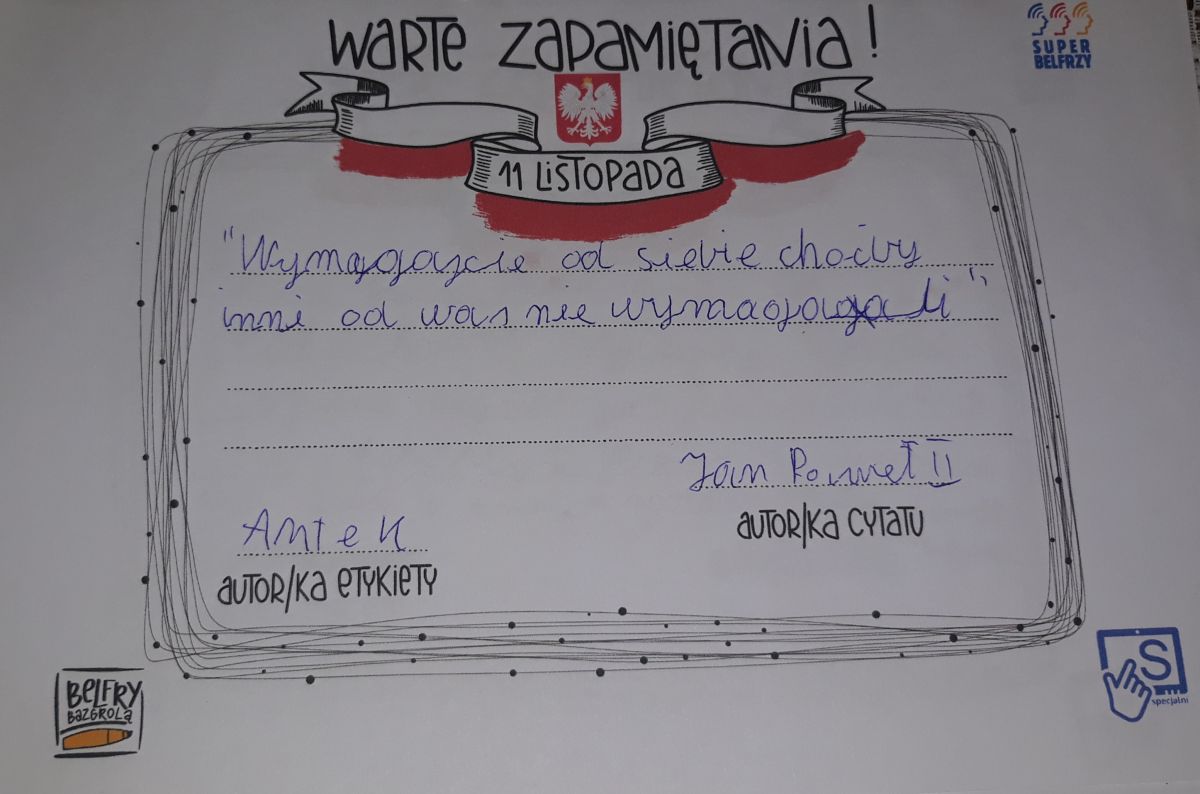 WARTE ZAPAMIĘTANIA!
SUPER
BELFRZY
11 LISTOPADA
"Wymągajcie od siebie choćby
inni od was nie wymagagali"
Jan Paweł II
AUTOR/KA CYTATU
Antek
AUTOR/KA ETYKIETY
BELFRY
BAZGROLĄ
S
specjalni